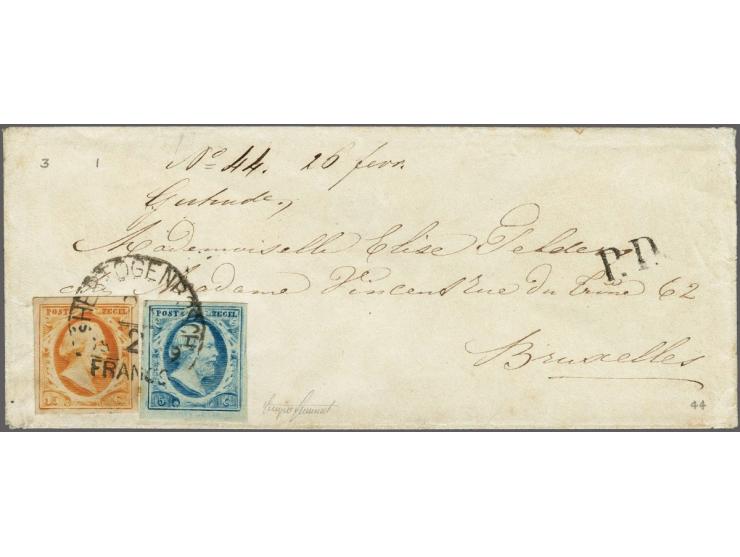 3 1
No 44. 26 fevr.
Gertrude,
Mademoiselle Elise Gelder
P.D.
Madame Vincent rue du Trône 62
Bruxelles
'S HERTOGENBOSCH
FRANCO
POST ZEGEL
POST ZEGEL
15 C
5 C
44